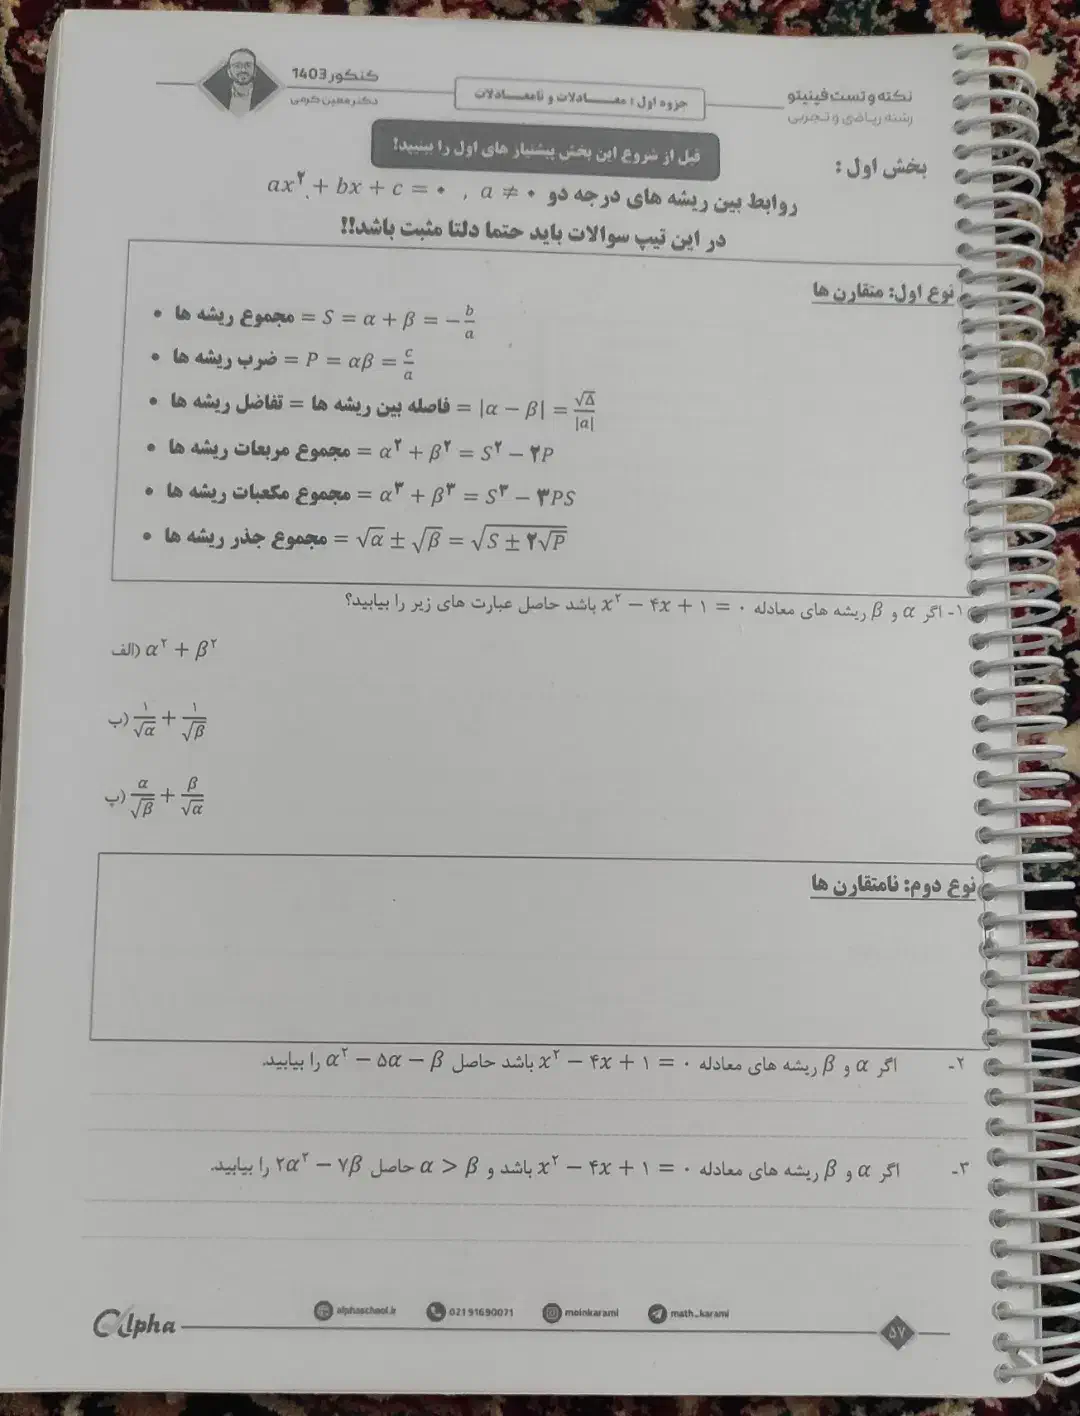 نکته و تست فینیتو
رشته ریاضی و تجربی
جزوه اول : معادلات و نامعادلات
کنکور 1403
دکتر معین کرمی
قبل از شروع این بخش پیشنیاز های اول را ببینید!
بخش اول :
روابط بین ریشه های درجه دو ax² + bx + c = ۰ , a ≠ ۰
در این تیپ سوالات باید حتما دلتا مثبت باشد!!
نوع اول: متقارن ها
• مجموع ریشه ها = S = α + β = −b/a
• ضرب ریشه ها = P = αβ = c/a
• تفاضل ریشه ها = فاصله بین ریشه ها = |α − β| = √Δ/|a|
• مجموع مربعات ریشه ها = α² + β² = S² − ۲P
• مجموع مکعبات ریشه ها = α³ + β³ = S³ − ۳PS
• مجموع جذر ریشه ها = √α ± √β = √(S ± ۲√P)
۱- اگر α و β ریشه های معادله x² − ۴x + ۱ = ۰ باشد حاصل عبارت های زیر را بیابید؟
الف) α² + β²
ب) ۱/√α + ۱/√β
پ) α/√β + β/√α
نوع دوم: نامتقارن ها
۲- اگر α و β ریشه های معادله x² − ۴x + ۱ = ۰ باشد حاصل α² − ۵α − β را بیابید.
۳- اگر α و β ریشه های معادله x² − ۴x + ۱ = ۰ باشد و α > β حاصل ۲α² − ۷β را بیابید.
Alpha
alphaschool.ir 02191690071 moinkarami math_karami
۵۷